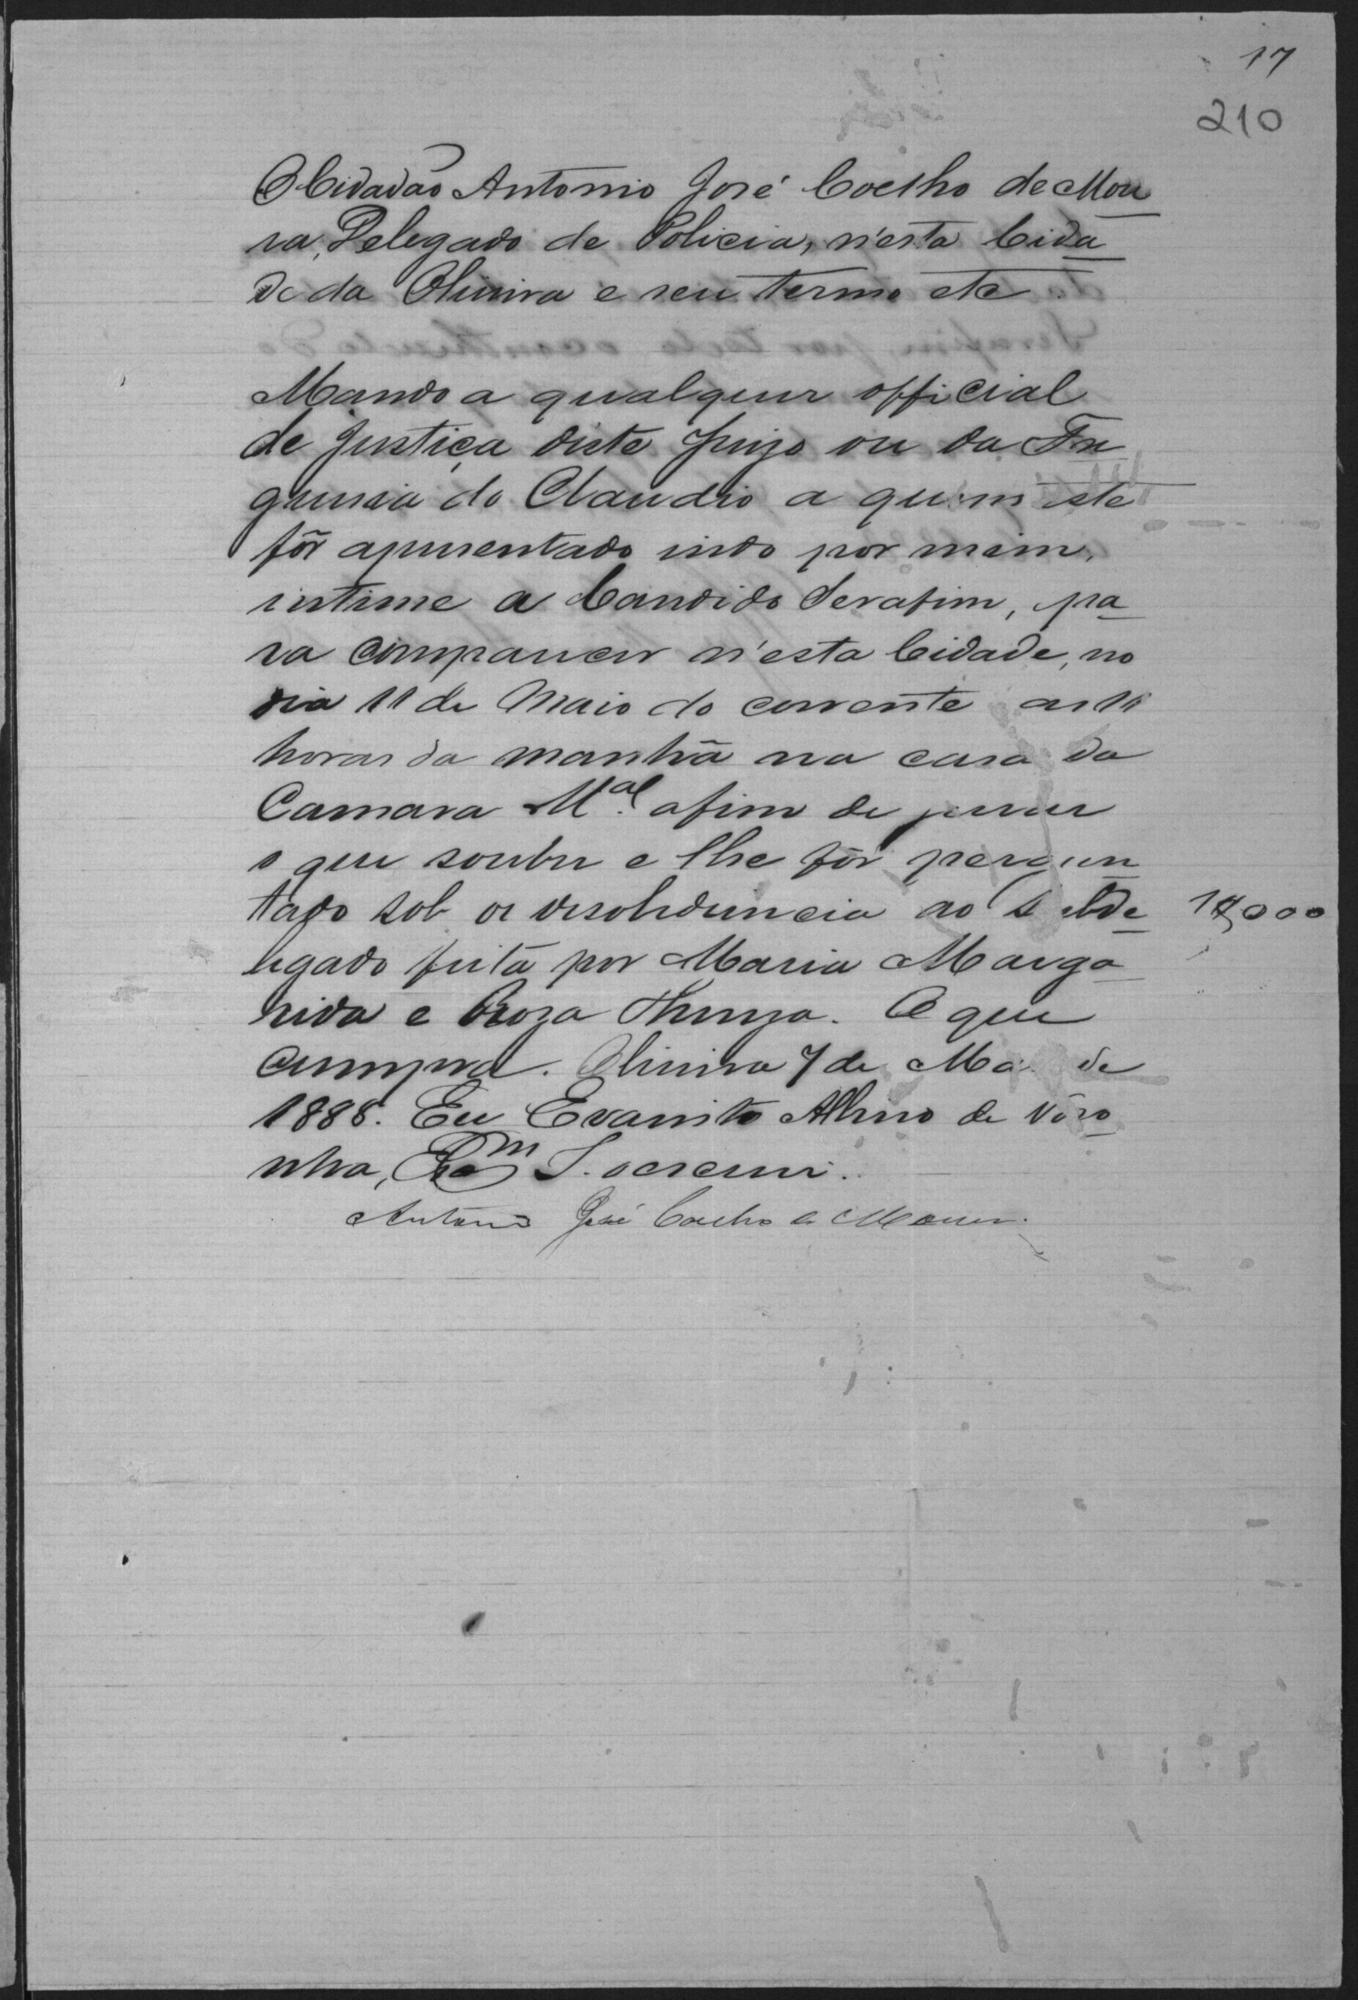 17
210
O Cidadão Antonio José Coelho de Mou
ra, Delegado de Policia, n'esta Cida
de da Oliveira e seu termo etc
Mando a qualquer official
de justiça deste Juizo ou da Fre
guesia do Claudio a quem este
fôr apresentado indo por mim,
intime a Candido Serafim, pa
ra comparecer n'esta Cidade, no
dia 11 de Maio do corrente as 11
horas da manhã na casa da
Camara M.al afim de jurar
o que souber e lhe fôr pergun
tado sob. a desobediencia ao Subde
legado feita por Maria Marga
rida e Roza Thereza. O que
cumpra. Oliveira 7 de Maio de
1888. Eu Evaristo Albino de Noro
nha, Escm S. o escrevi.
Antonio José Coelho de Moura.